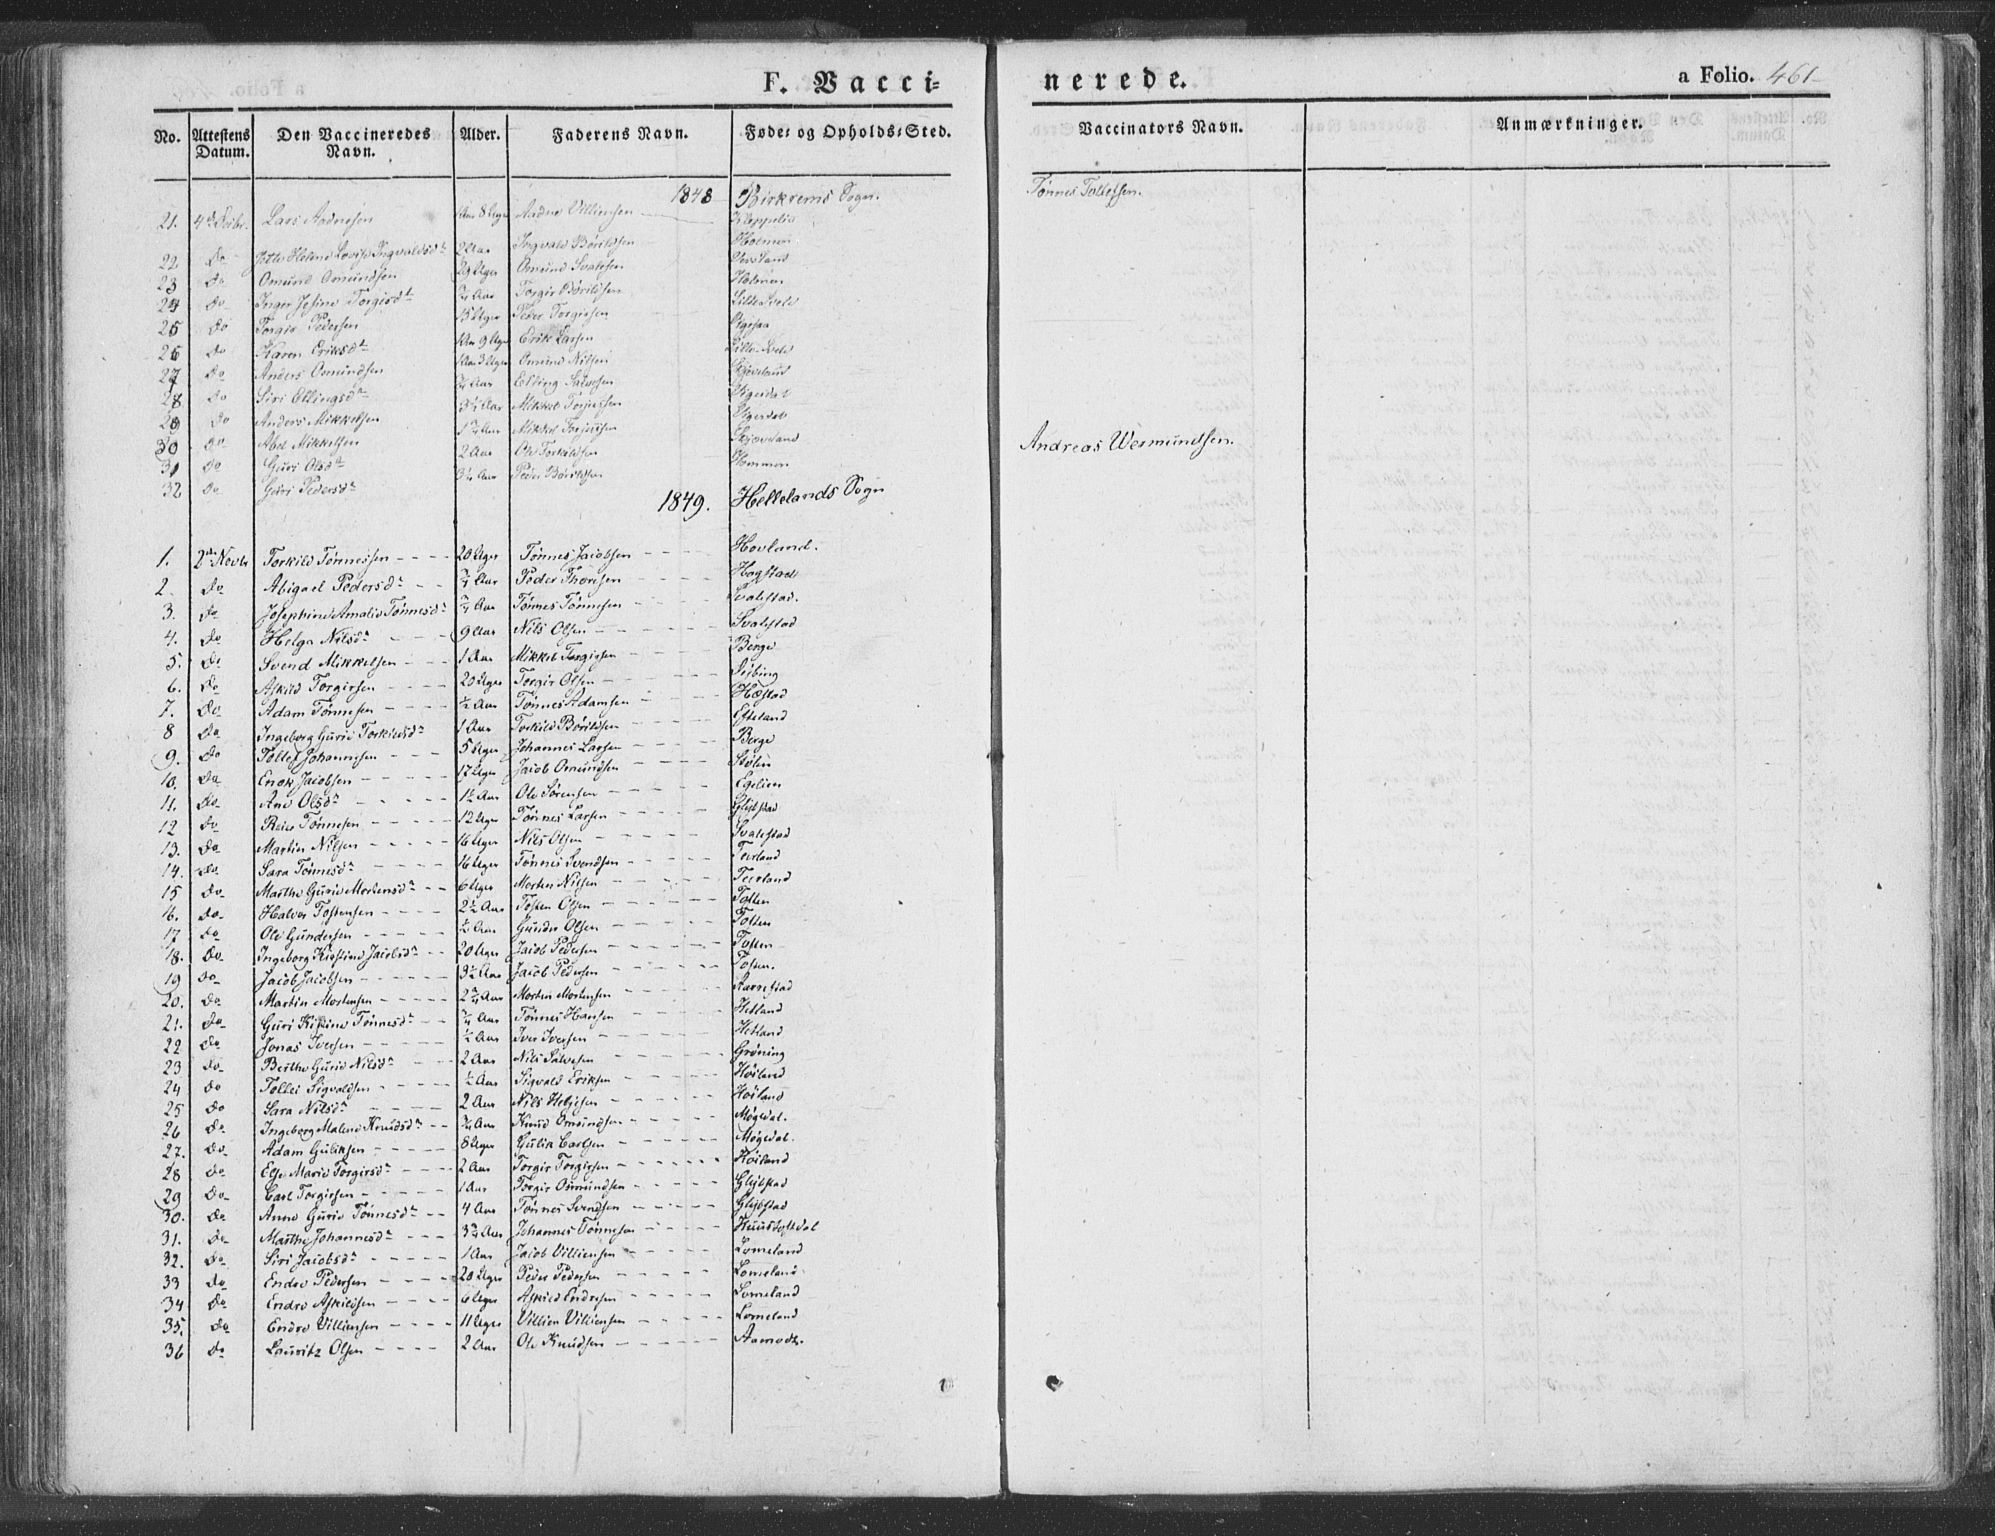 F. Vacci=
nerede.
a Folio. 461
No. Attestens Datum. Den Vaccineredes Navn. Alder. Faderens Navn. Føde= og Opholds=Sted. Vaccinators Navn. Anmærkninger.
1848 Birkrems Sogn. Tønnes Tollefsen.
21. Lars Aadnesen Aadne Villumsen
22 Do Ingvald Børildsen Holmen
23 Do Omund Omundsen 29 Uger Omund
24 Do Inger Josine Torgirsdr ¾ Aar Torgir Børildsen Holmen
25 Do Torgir Pedersen 15 Uger Peder Torgirsen
26 Do Karen Eriksdr Erik Larsen
27 Do Anders Omundsen Omund Nilsen
28 Do Siri Ellingsdr ¾ Aar Elling
29 Do Anders Mikkelsen Mikkel
30 Do Abel Mikkelsen Mikkel
31 Do Guri Olsdr 2 Aar Ole Torkildsen Skjæveland Andreas Wermundsen.
32 Do Guri Pedersdr Peder Børildsen
1849. Hellelands Sogn
1. 2de Novbr Torkild Tønnessen 20 Uger Tønnes Jacobsen Hovland.
2. Do Abigael Pedersdr ¾ Aar Peder Thorsen Hogstad
3. Do Josephine Amalie Tønnesdr ¾ Aar Tønnes Tønnesen Svalestad.
4. Do Helga Nilsdr 9 Aar Nils Olsen Svalestad
5. Do Svend Mikkelsen 1 Aar Mikkel Torgirsen Berge
6. Do Askild Torgirsen 20 Uger Torgir Olsen
7. Do Adam Tønnesen ½ Aar Tønnes Adamsen Hæstad
8 Do Ingeborg Gurie Torkildsdr 1 Aar Torkild Børildsen Efteland
9. Do Tollef Johannesen 5 Uger Johannes Larsen Berge
10. Do Enok Jacobsen 17 Uger Jacob Omundsen Stølen
11. Do Ane Olsdr 1½ Aar Ole Sørensen Egelien
12 Do Reier Tønnesen 12 Uger Tønnes Larsen
13. Do Martin Nilsen 16 Uger Nils Olsen Svalestad
14. Do Sara Tønnesdr 16 Uger Tønnes Svendsen Terland
15 Do Marthe Gurie Mortensdr 6 Uger Morten Nilsen Terland
16. Do Halvor Tostensen 2½ Aar Tosten Olsen
17 Do Ole Gundersen ½ Aar Gunder Olsen
18. Do Ingeborg Kirstine Jacobsdr 20 Uger Jacob Pedersen
19 Do Jacob Jacobsen 3½ Aar Jacob Pedersen
20. Do Martin Mortensen 2¾ Aar Morten Mortensen Aarrestad
21. Do Guri Kistine Tønnesdr ¾ Aar Tønnes Hansen Hetland
22 Do Jonas Iversen ½ Aar Iver Iversen Hetland
23 Do Berthe Gurie Nilsdr 2 Aar Nils Salvesen Grøning
24 Do Tollei Sigvaldsen ½ Aar Sigvald Eriksen Høiland
25 Do Sara Nilsdr 2 Aar Nils Helgesen Høiland
26 Do Ingeborg Malene Knudsdr ¾ Aar Knud Omundsen Møgedal.
27. Do Adam Guliksen 8 Uger Gulik Carlsen Møgedal.
28 Do Else Marie Torgirsdr 2 Aar Torgir Torgirsen Høiland
29 Do Carl Torgirsen 1 Aar Torgir Osmundsen
30. Do Anne Gurie Tønnesdr 4 Aar Tønnes Svendsen
31. Do Marthe Johannesdr 3¾ Aar Johannes Tønnesen
32. Do Siri Jacobsdr 1 Aar Jacob Villiensen Lomeland
33 Do Endre Pedersen 20 Uger Peder Pedersen Lomeland
34 Do Endre Askildsen 6 Uger Askild Endresen Lomeland
35. Do Endre Villiensen 11 Uger Villien Villiensen Lomeland
36 Do Lauritz Olsen 2 Aar Ole Knudsen Aamodt.